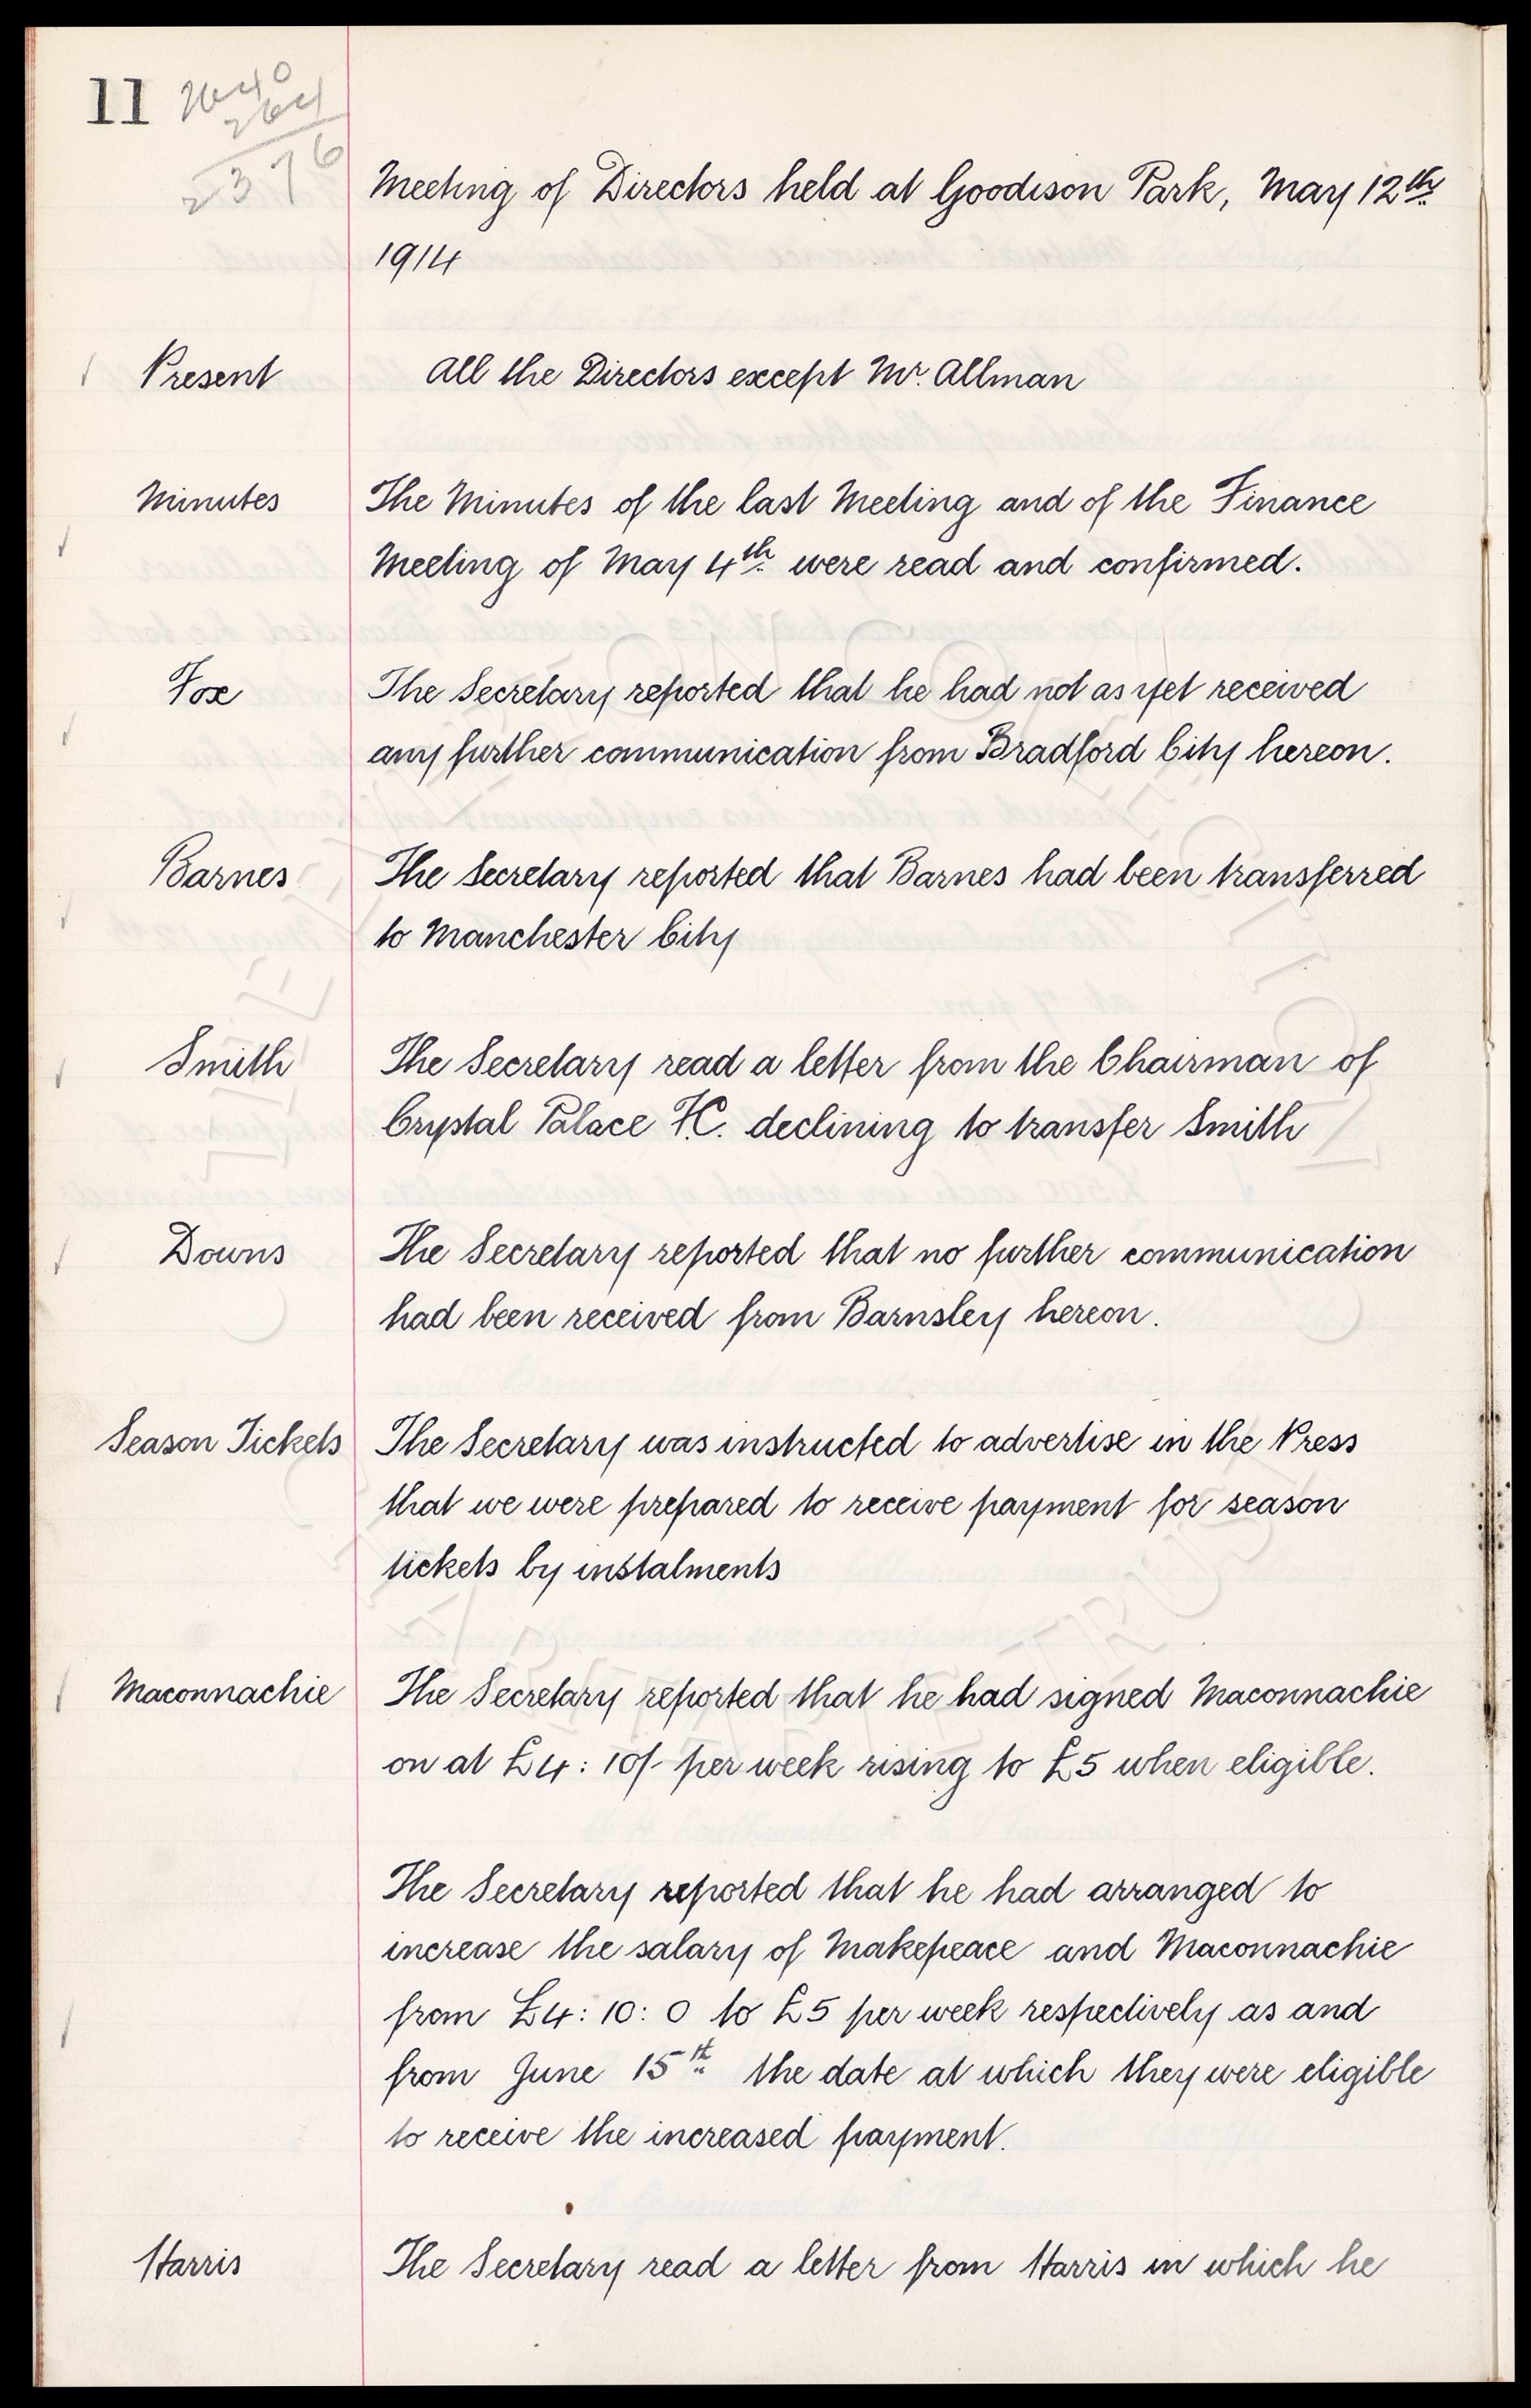 11 2640
264
2376
Meeting of Directors held at Goodison Park, May 12th
1914
Present All the Directors except Mr. Allman
Minutes The Minutes of the last Meeting and of the Finance
Meeting of May 4th were read and confirmed.
Fox The Secretary reported that he had not as yet received
any further communication from Bradford City hereon.
Barnes The Secretary reported that Barnes had been transferred
to Manchester City
Smith The Secretary read a letter from the Chairman of
Crystal Palace F.C. declining to transfer Smith
Downs The Secretary reported that no further communication
had been received from Barnsley hereon.
Season Tickets The Secretary was instructed to advertise in the Press
that we were prepared to receive payment for season
tickets by instalments
Maconnachie The Secretary reported that he had signed Maconnachie
on at £4: 10/- per week rising to £5 when eligible.
The Secretary reported that he had arranged to
increase the salary of Makepeace and Maconnachie
from £4: 10: 0 to £5 per week respectively as and
from June 15th the date at which they were eligible
to receive the increased payment.
Harris The Secretary read a letter from Harris in which he